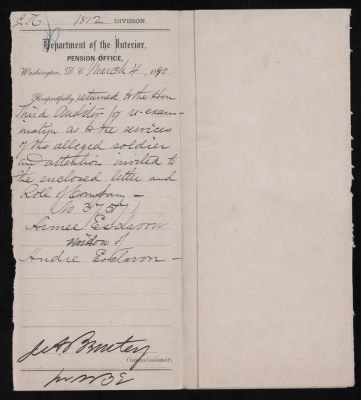 1812 DIVISION
Department of the Interior,
PENSION OFFICE,
Washington, D. C. March 4, 1890.
Respectfully returned to the Hon
Third Auditor for re-exam-
ination as to the services
of the alleged soldier
and attention invited to
the enclosed letter and
Roll of Compan -
Aimee Esclavon
widow of
Andre Esclavon -
Commissioner.